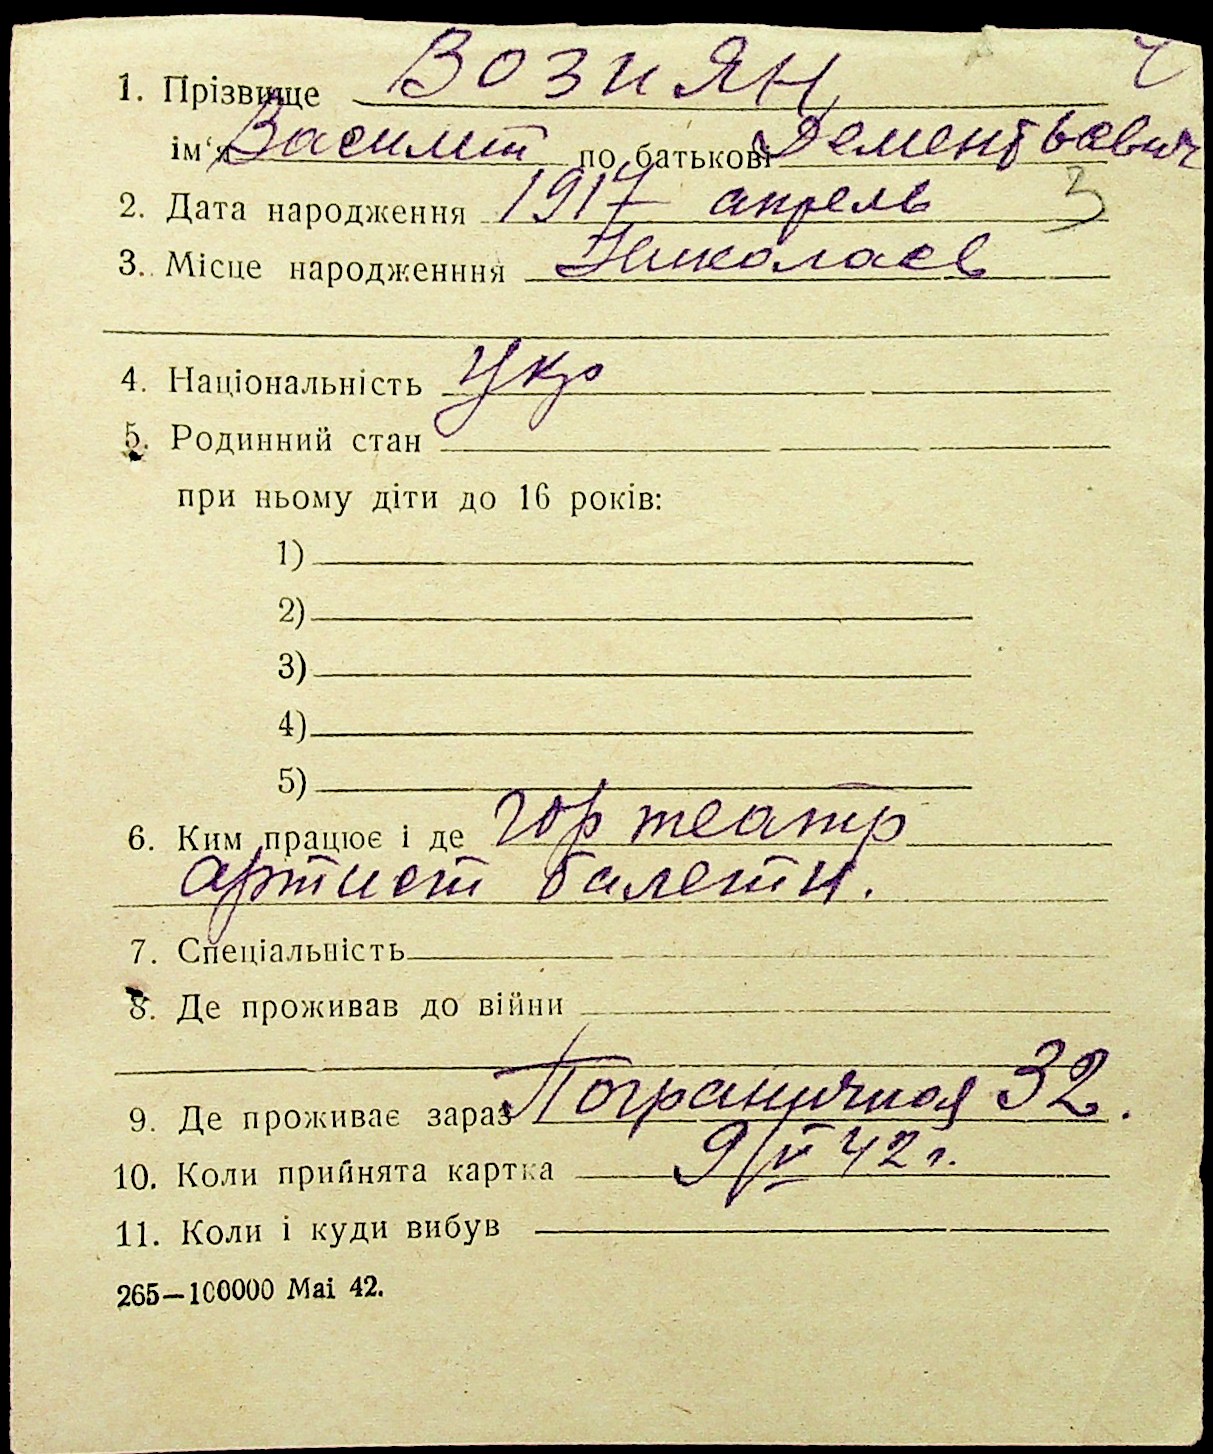 1. Прізвище ВОЗИЯН
ім'я Василий по батькові Дементьевич
2. Дата народження 1917 апрель 3
3. Місце народженння Николаев
4. Національність Укр
5. Родинний стан
при ньому діти до 16 років:
1)
2)
3)
4)
5)
6. Ким працює і де гор театр
артист балета.
7. Спеціальність
8. Де проживав до війни
9. Де проживає зараз Пограничная 32.
10. Коли прийнята картка 9/VI 42 г.
11. Коли і куди вибув
265—100000 Mai 42.